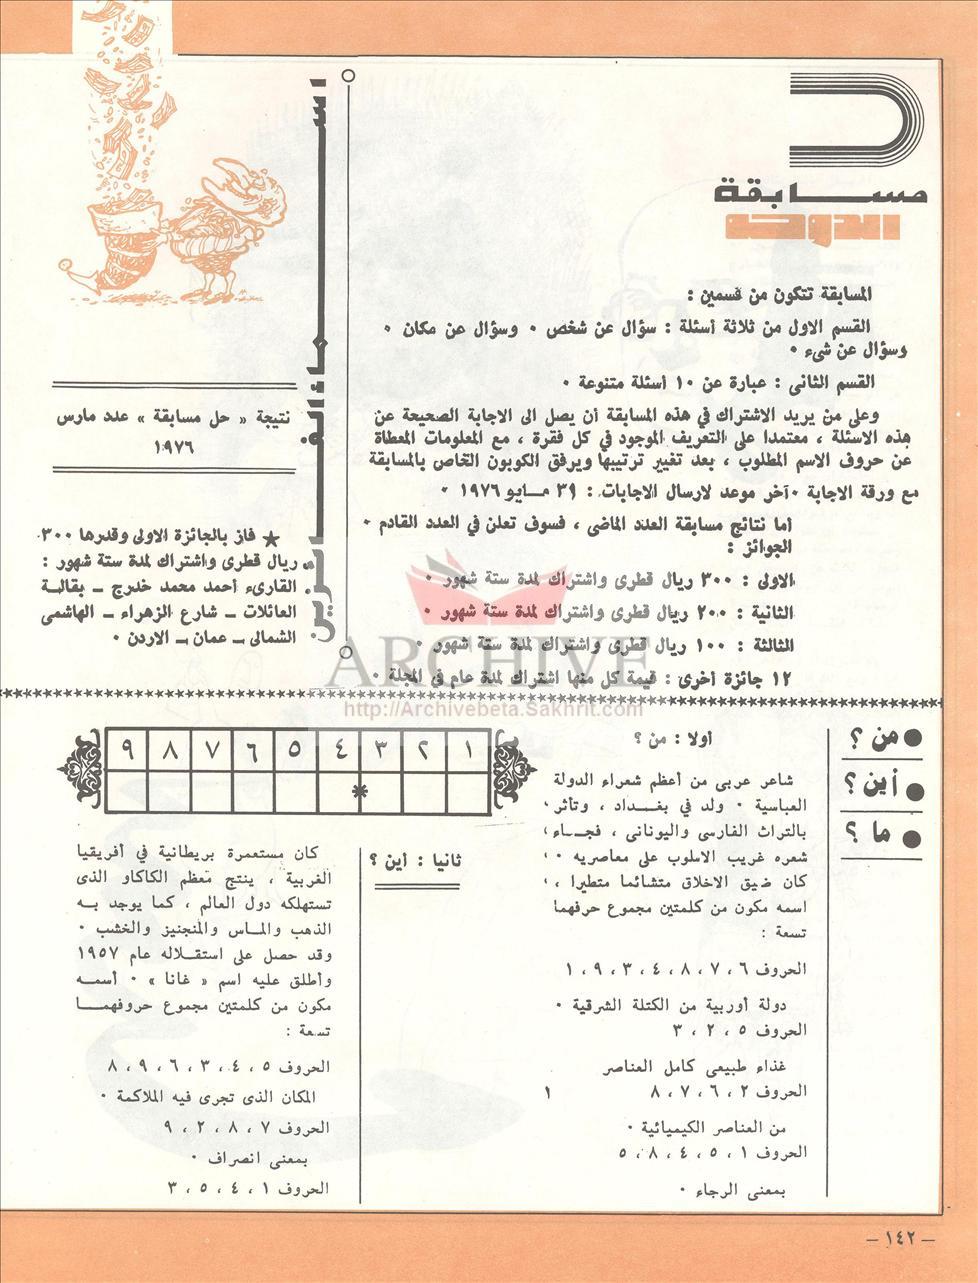 مسابقة
الدوحة
المسابقة تتكون من قسمين :
القسم الاول من ثلاثة أسئلة : سؤال عن شخص ٠ وسؤال عن مكان ٠
وسؤال عن شىء ٠
القسم الثانى : عبارة عن ١٠ أسئلة متنوعة ٠
وعلى من يريد الاشتراك في هذه المسابقة أن يصل الى الاجابة الصحيحة عن
هذه الاسئلة ، معتمدا على التعريف الموجود في كل فقرة ، مع المعلومات المعطاة
عن حروف الاسم المطلوب ، بعد تغيير ترتيبها ويرفق الكوبون الخاص بالمسابقة
مع ورقة الاجابة ٠ آخر موعد لارسال الاجابات : ٣١ مايو ١٩٧٦ ٠
أما نتائج مسابقة العدد الماضى ، فسوف تعلن في العدد القادم ٠
الجوائز :
الاولى : ٣٠٠ ريال قطرى واشتراك لمدة ستة شهور ٠
الثانية : ٢٠٠ ريال قطرى واشتراك لمدة ستة شهور ٠
الثالثة : ١٠٠ ريال قطرى واشتراك لمدة ستة شهور ٠
١٢ جائزة أخرى : قيمة كل منها اشتراك لمدة عام في المجلة ٠
اسماء الفائزين
نتيجة « حل مسابقة » عدد مارس
١٩٧٦
★ فاز بالجائزة الاولى وقدرها ٣٠٠
ريال قطرى واشتراك لمدة ستة شهور :
القارىء أحمد محمد خدرج – بقالة
العائلات – شارع الزهراء – الهاشمى
الشمالى – عمان – الاردن ٠
ARCHIVE
http://Archivebeta.Sakhrit.com
● من ؟
● أين ؟
● ما ؟
أولا : من ؟
شاعر عربى من أعظم شعراء الدولة
العباسية ٠ ولد في بغداد ، وتأثر
بالتراث الفارسى واليونانى ، فجاء
شعره غريب الاسلوب على معاصريه ٠
كان ضيق الاخلاق متشائما متطيرا ،
اسمه مكون من كلمتين مجموع حرفهما
تسعة :
الحروف ٦ ، ٧ ، ٨ ، ٤ ، ٣ ، ٩ ، ١
دولة أوربية من الكتلة الشرقية ٠
الحروف ٥ ، ٢ ، ٣
غذاء طبيعى كامل العناصر
الحروف ٢ ، ٦ ، ٧ ، ٨ ١
من العناصر الكيميائية ٠
الحروف ١ ، ٥ ، ٤ ، ٨ ، ٥
بمعنى الرجاء ٠
١ ٢ ٣ ٤ ٥ ٦ ٧ ٨ ٩
*
ثانيا : أين ؟
كان مستعمرة بريطانية في أفريقيا
الغربية ، ينتج معظم الكاكاو الذى
تستهلكه دول العالم ، كما يوجد به
الذهب والماس والمنجنيز والخشب ٠
وقد حصل على استقلاله عام ١٩٥٧
وأطلق عليه اسم « غانا » ٠ أسمه
مكون من كلمتين مجموع حروفهما
تسعة :
الحروف ٥ ، ٤ ، ٣ ، ٦ ، ٩ ، ٨
المكان الذى تجرى فيه الملاكمة ٠
الحروف ٧ ، ٨ ، ٢ ، ٩
بمعنى انصراف ٠
الحروف ١ ، ٤ ، ٥ ، ٣
– ١٤٢ –